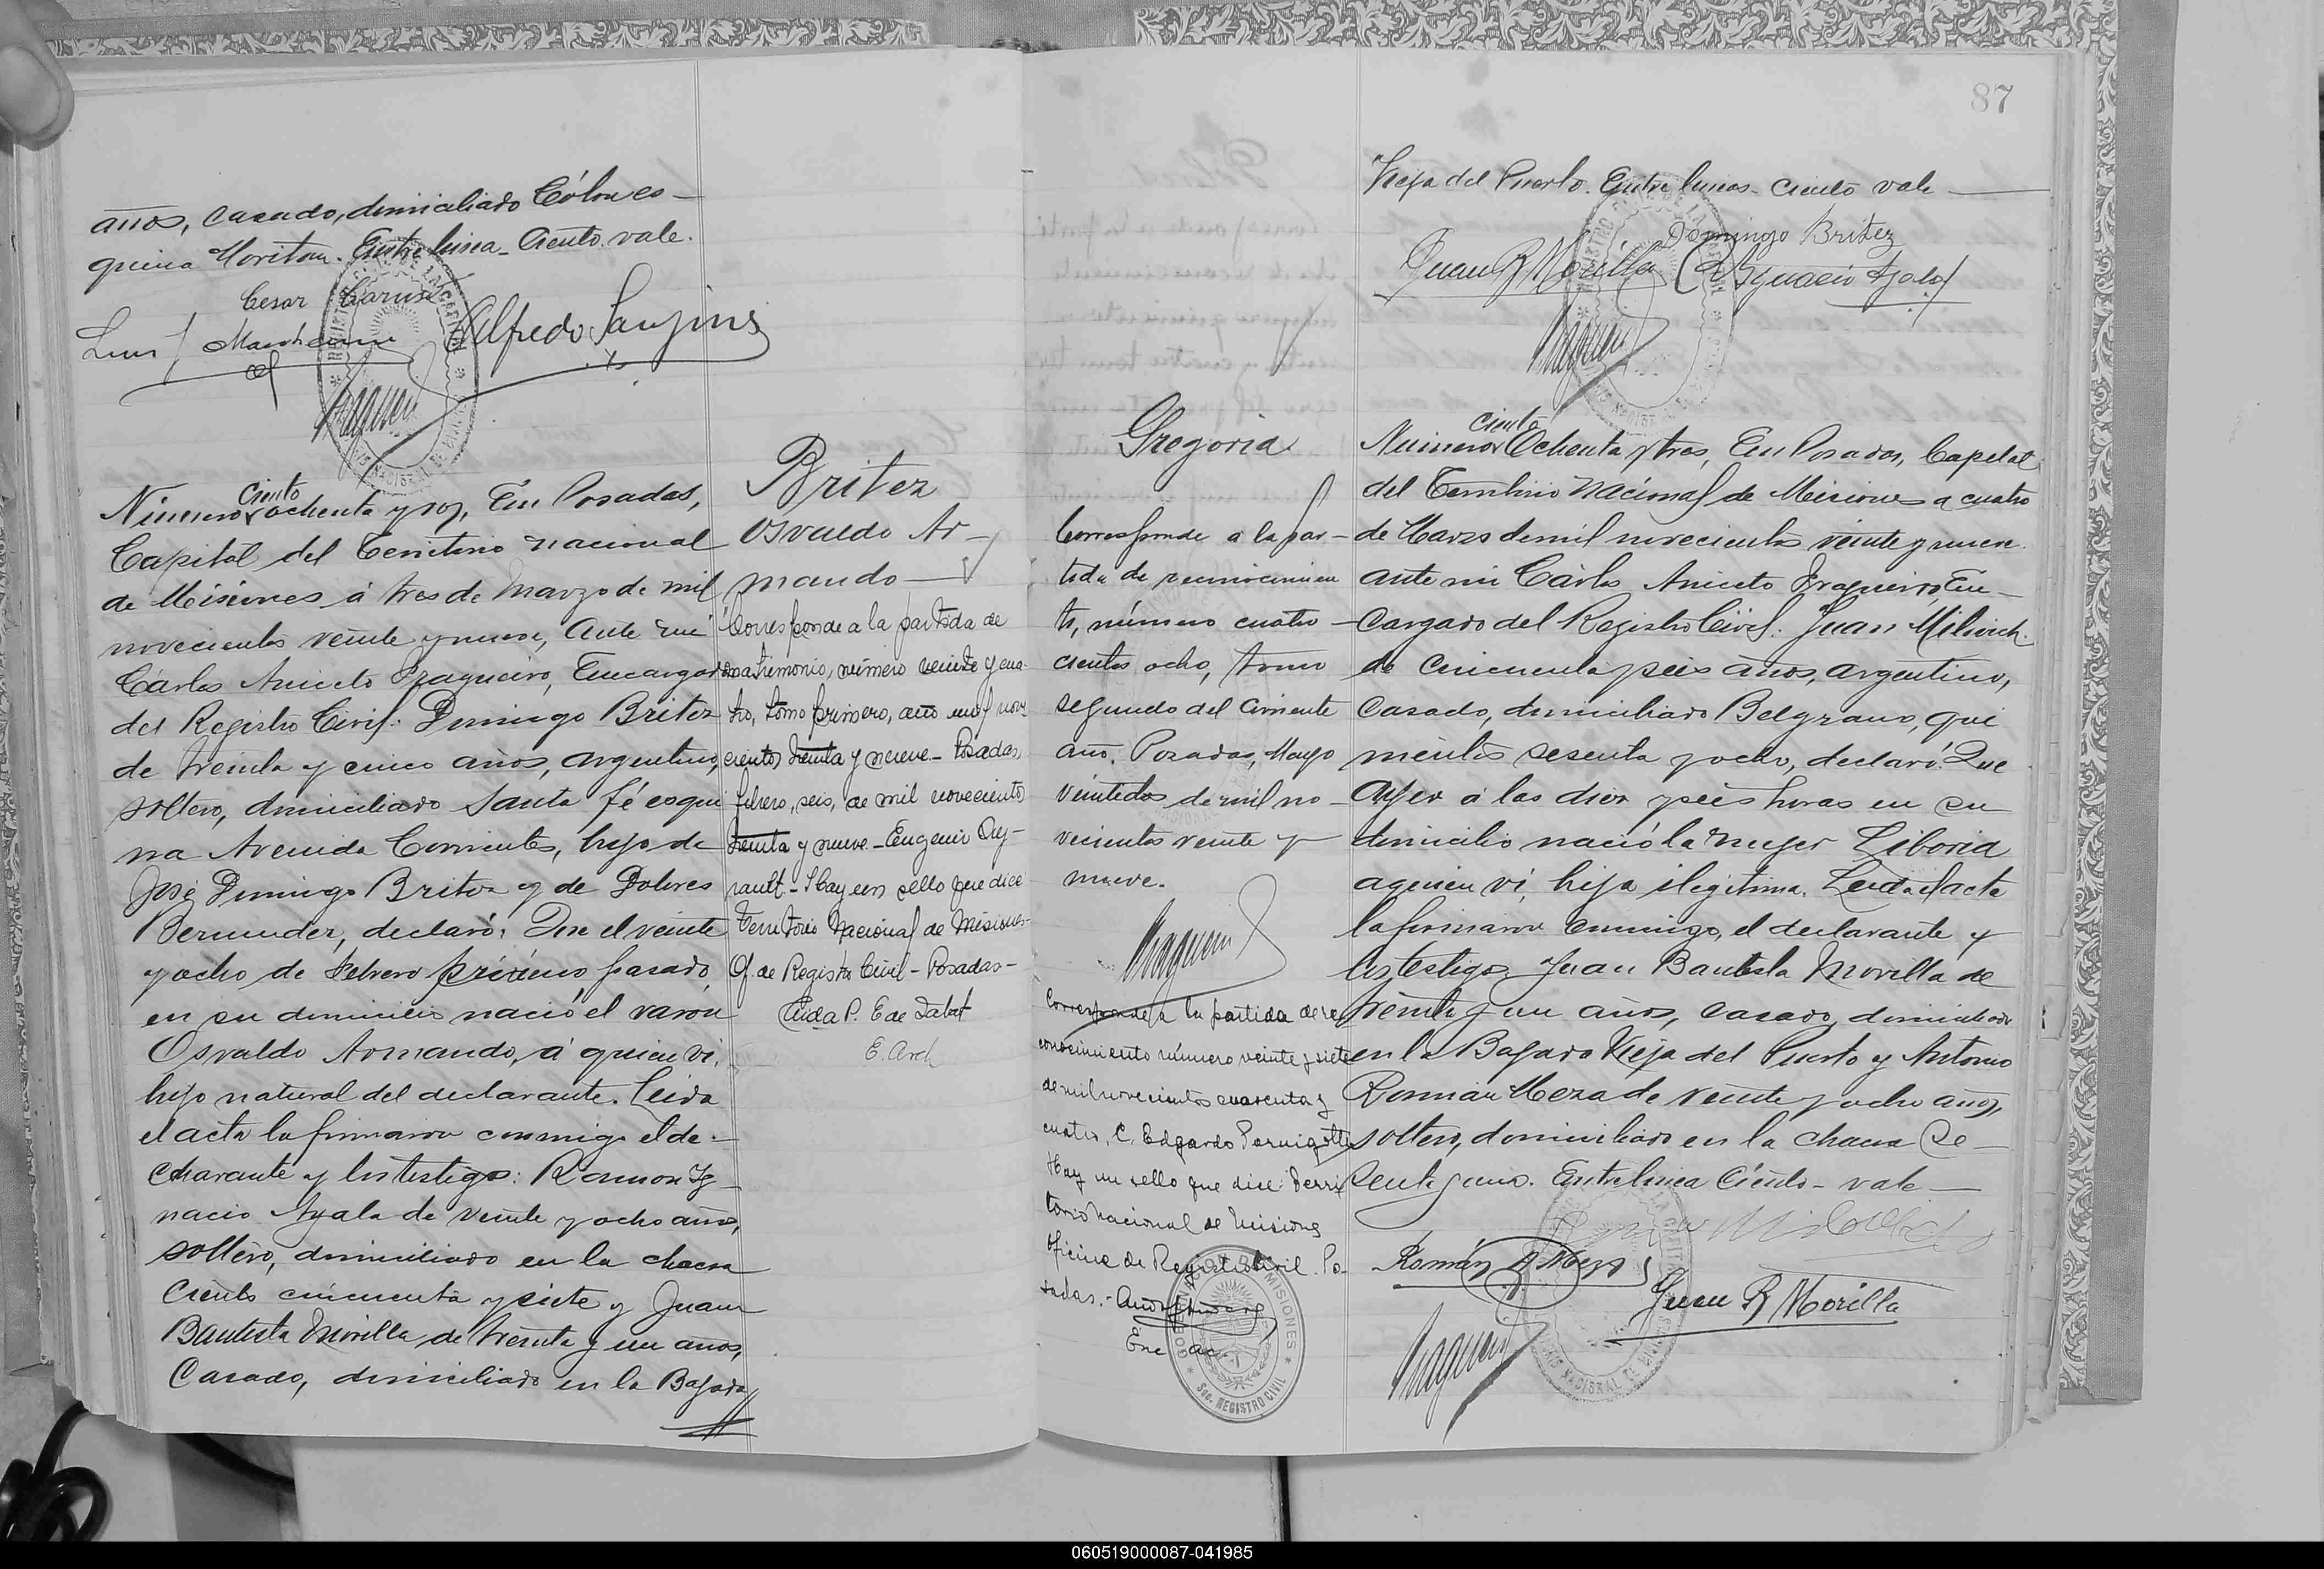 años, casado, domiciliado Cólon es-
quina Moritan. Entre linea - Ciento. vale.
Cesar Caruso
Luis Alfredo
Número ciento ochenta y dos, En Posadas,
Capital del Territorio nacional
de Misiones á tres de Marzo de mil
novecientos veinte y nueve, Ante mi
Cárlos Aniceto Fragueiro, Encargado
del Registro Civil: Domingo Britez
de treinta y cinco años, argentino,
soltero, domiciliado Santa fé esqui
na Avenida Corrientes, hijo de
José Domingo Britez y de Dolores
Bermudez, declaró: Que el veinte
y ocho de Febrero próximo pasado
en su domicilio nació el varón
Osvaldo Armando, á quien vi,
hijo natural del declarante. Leida
el acta la firmaron conmigo el de-
clarante y los testigos: Ramon Ig
nacio Ayala de veinte y ocho años,
soltero, domiciliado en la chacra
Ciento cincuenta y siete y Juan
Bautista Morilla de treinta y un años,
Casado, domiciliado en la Bajada
Britez
Osvaldo Ar-
mando
Corresponde a la partida de
matrimonio, número veinte y cua-
tro, tomo primero, año mil nove
cientos treinta y nueve - Posadas,
febrero, seis, de mil novecientos
treinta y nueve - Eugenio
- Hay un sello que dice
Territorio Nacional de Misiones-
Of. de Registro Civil - Posadas -
Aida P. E de Labat
E. Arch
87
Vieja del Puerto. Entre lineas - ciento vale
Domingo Britez
Juan B Morilla Ignacio Ayala
Gregoria
Corresponde a la par-
tida de reconocimien
to, número cuatro
cientos ocho, tomo
segundo del corriente
año. Posadas, Mayo
veintidos de mil no-
vecientos veinte y
nueve.
Corresponde a la partida de re
conocimiento número veinte y siete
de mil novecientos cuarenta y
cuatro, C. Edgardo Pernigotti
Hay un sello que dice: Terri
torio Nacional de Misiones
Oficina de Registro Civil. Po-
sadas.-
Enc
GOBERNACION DE MISIONES
Sec. REGISTRO CIVIL
Número ciento Ochenta y tres, En Posadas, Capital
del Territorio Nacional de Misiones a cuatro
de Marzo de mil novecientos veinte y nueve
ante mi Cárlos Aniceto Fragueiro, En-
cargado del Registro Civil: Juan Milovich
de cincuenta y seis años, argentino,
Casado, domiciliado Belgrano, qui
nientos sesenta y ocho, declaró: Que
Ayer á las diez y seis horas en su
domicilio nació la mujer Liboria
a quien vi, hija ilegitima. Leida el acta
la firmaron conmigo, el declarante y
los testigos Juan Bautista Morilla de
treinta y un años, casado, domiciliado
en la Bajada Vieja del Puerto y Antonio
Román Meza de veinte y ocho años,
soltero, domiciliado en la chacra Se-
senta y uno. Entre linea Ciento - vale
Román A. Meza
Juan B Morilla
060519000087-041985